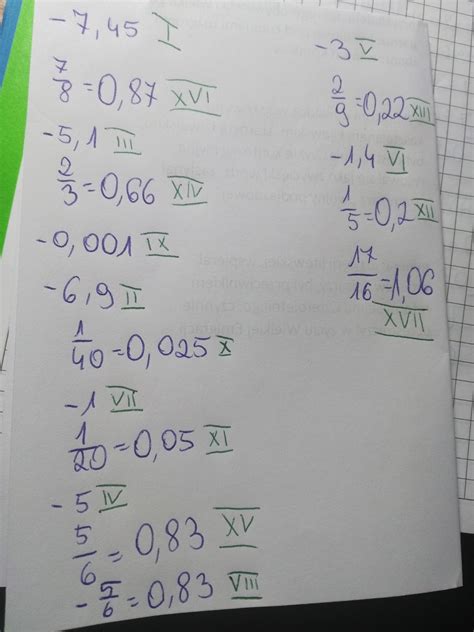 -7,45 I
7/8=0,87 XVI
-5,1 III
2/3=0,66 XIV
-0,001 IX
-6,9 II
1/40=0,025 X
-1 VII
1/20=0,05 XI
-5 IV
5/6=0,83 XV
-5/6=0,83 VIII
-3 V
2/9=0,22 XIII
-1,4 VI
1/5=0,2 XII
17/16=1,06
XVII